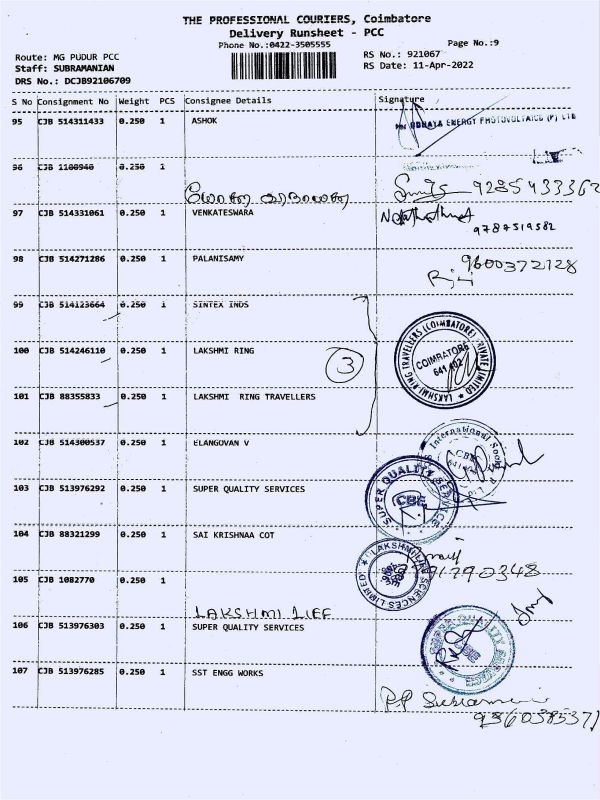 THE PROFESSIONAL COURIERS, Coimbatore
Delivery Runsheet - PCC
Phone No.:0422-3505555
Page No.:9
Route: MG PUDUR PCC
RS No.: 921067
Staff: SUBRAMANIAN
RS Date: 11-Apr-2022
DRS No.: DCJB92106709
S No Consignment No Weight PCS Consignee Details Signature
95 CJB 514311433 0.250 1 ASHOK
UDHAYA ENERGY PHOTOVOLTAICS (P) LTD
96 CJB 1100940 0.250 1
9285433362
97 CJB 514331061 0.250 1 VENKATESWARA
9787519582
98 CJB 514271286 0.250 1 PALANISAMY
9600372128
99 CJB 514123664 0.250 1 SINTEX INDS
100 CJB 514246110 0.250 1 LAKSHMI RING
3
LAKSHMI RING TRAVELLERS (COIMBATORE) PRIVATE LIMITED
COIMBATORE
641 402
101 CJB 88355833 0.250 1 LAKSHMI RING TRAVELLERS
102 CJB 514300537 0.250 1 ELANGOVAN V
International
CBE
103 CJB 513976292 0.250 1 SUPER QUALITY SERVICES
SUPER QUALITY SERVICE
CBE
104 CJB 88321299 0.250 1 SAI KRISHNAA COT
105 CJB 1082770 0.250 1
LAKSHMI LIFE SCIENCES LIMITED
LAKSHMI LIFE
106 CJB 513976303 0.250 1 SUPER QUALITY SERVICES
107 CJB 513976285 0.250 1 SST ENGG WORKS
P.P Subramani
9360385371